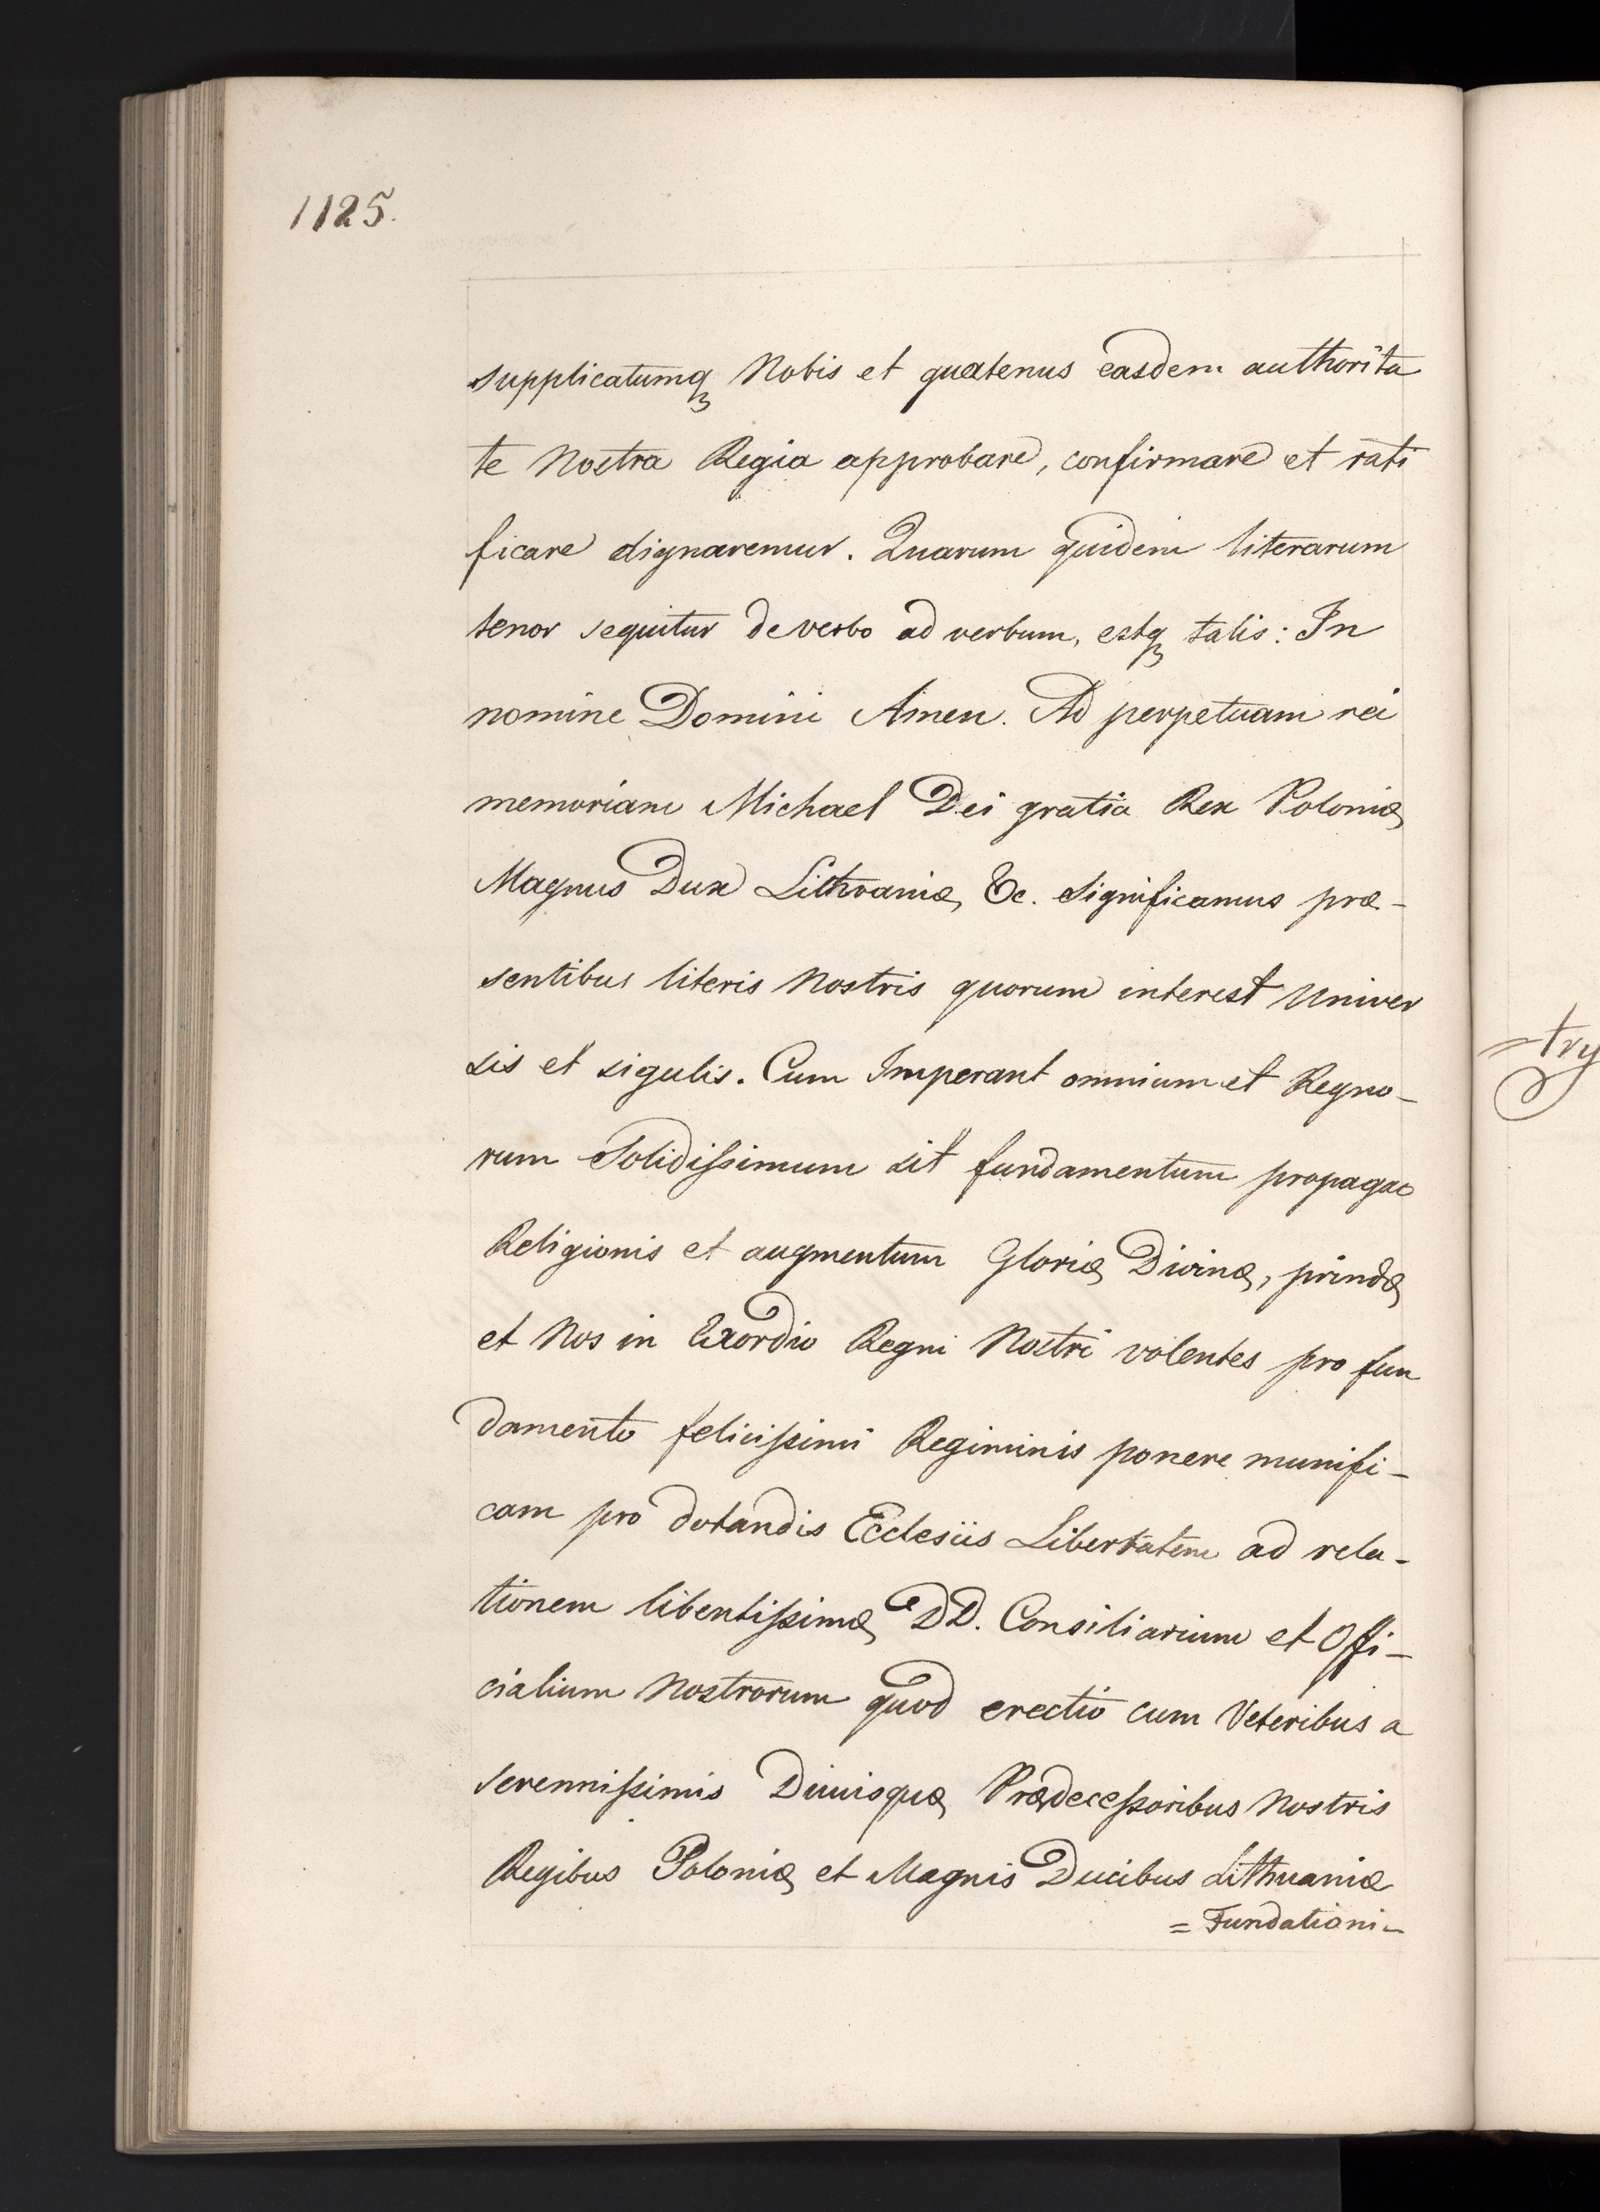 1125.
supplicatumq Nobis et quatenus easdem authorita
te Nostra Regia approbare, confirmare et rati
ficare dignaremur. Quarum quidem literarum
tenor sequitur de verbo ad verbum, estq talis: In
nomine Domini Amen. Ad perpetuam rei
memoriam Michael Dei gratia Rex Poloniæ
Magnus Dux Lithvaniæ, &c. Significamus præ-
sentibus literis Nostris quorum interest Univer
sis et sigulis. Cum Imperant omnium et Regno-
rum Solidissimum sit fundamentum propagao
Religionis et augmentum Gloriæ Divinæ, prindæ
et Nos in Exordio Regni Nostri volentes pro fun
damento felicissimi Regiminis ponere munifi-
cam pro dotandis Ecclesiis Libertatem ad rela-
tionem libentissimæ DD. Consiliarium et Offi-
cialium Nostrorum quod erectio cum Veteribus a
serennissimis Diuisquæ Prædecessoribus Nostris
Regibus Poloniæ et Magnis Ducibus Lithuaniæ
= Fundationi-
try